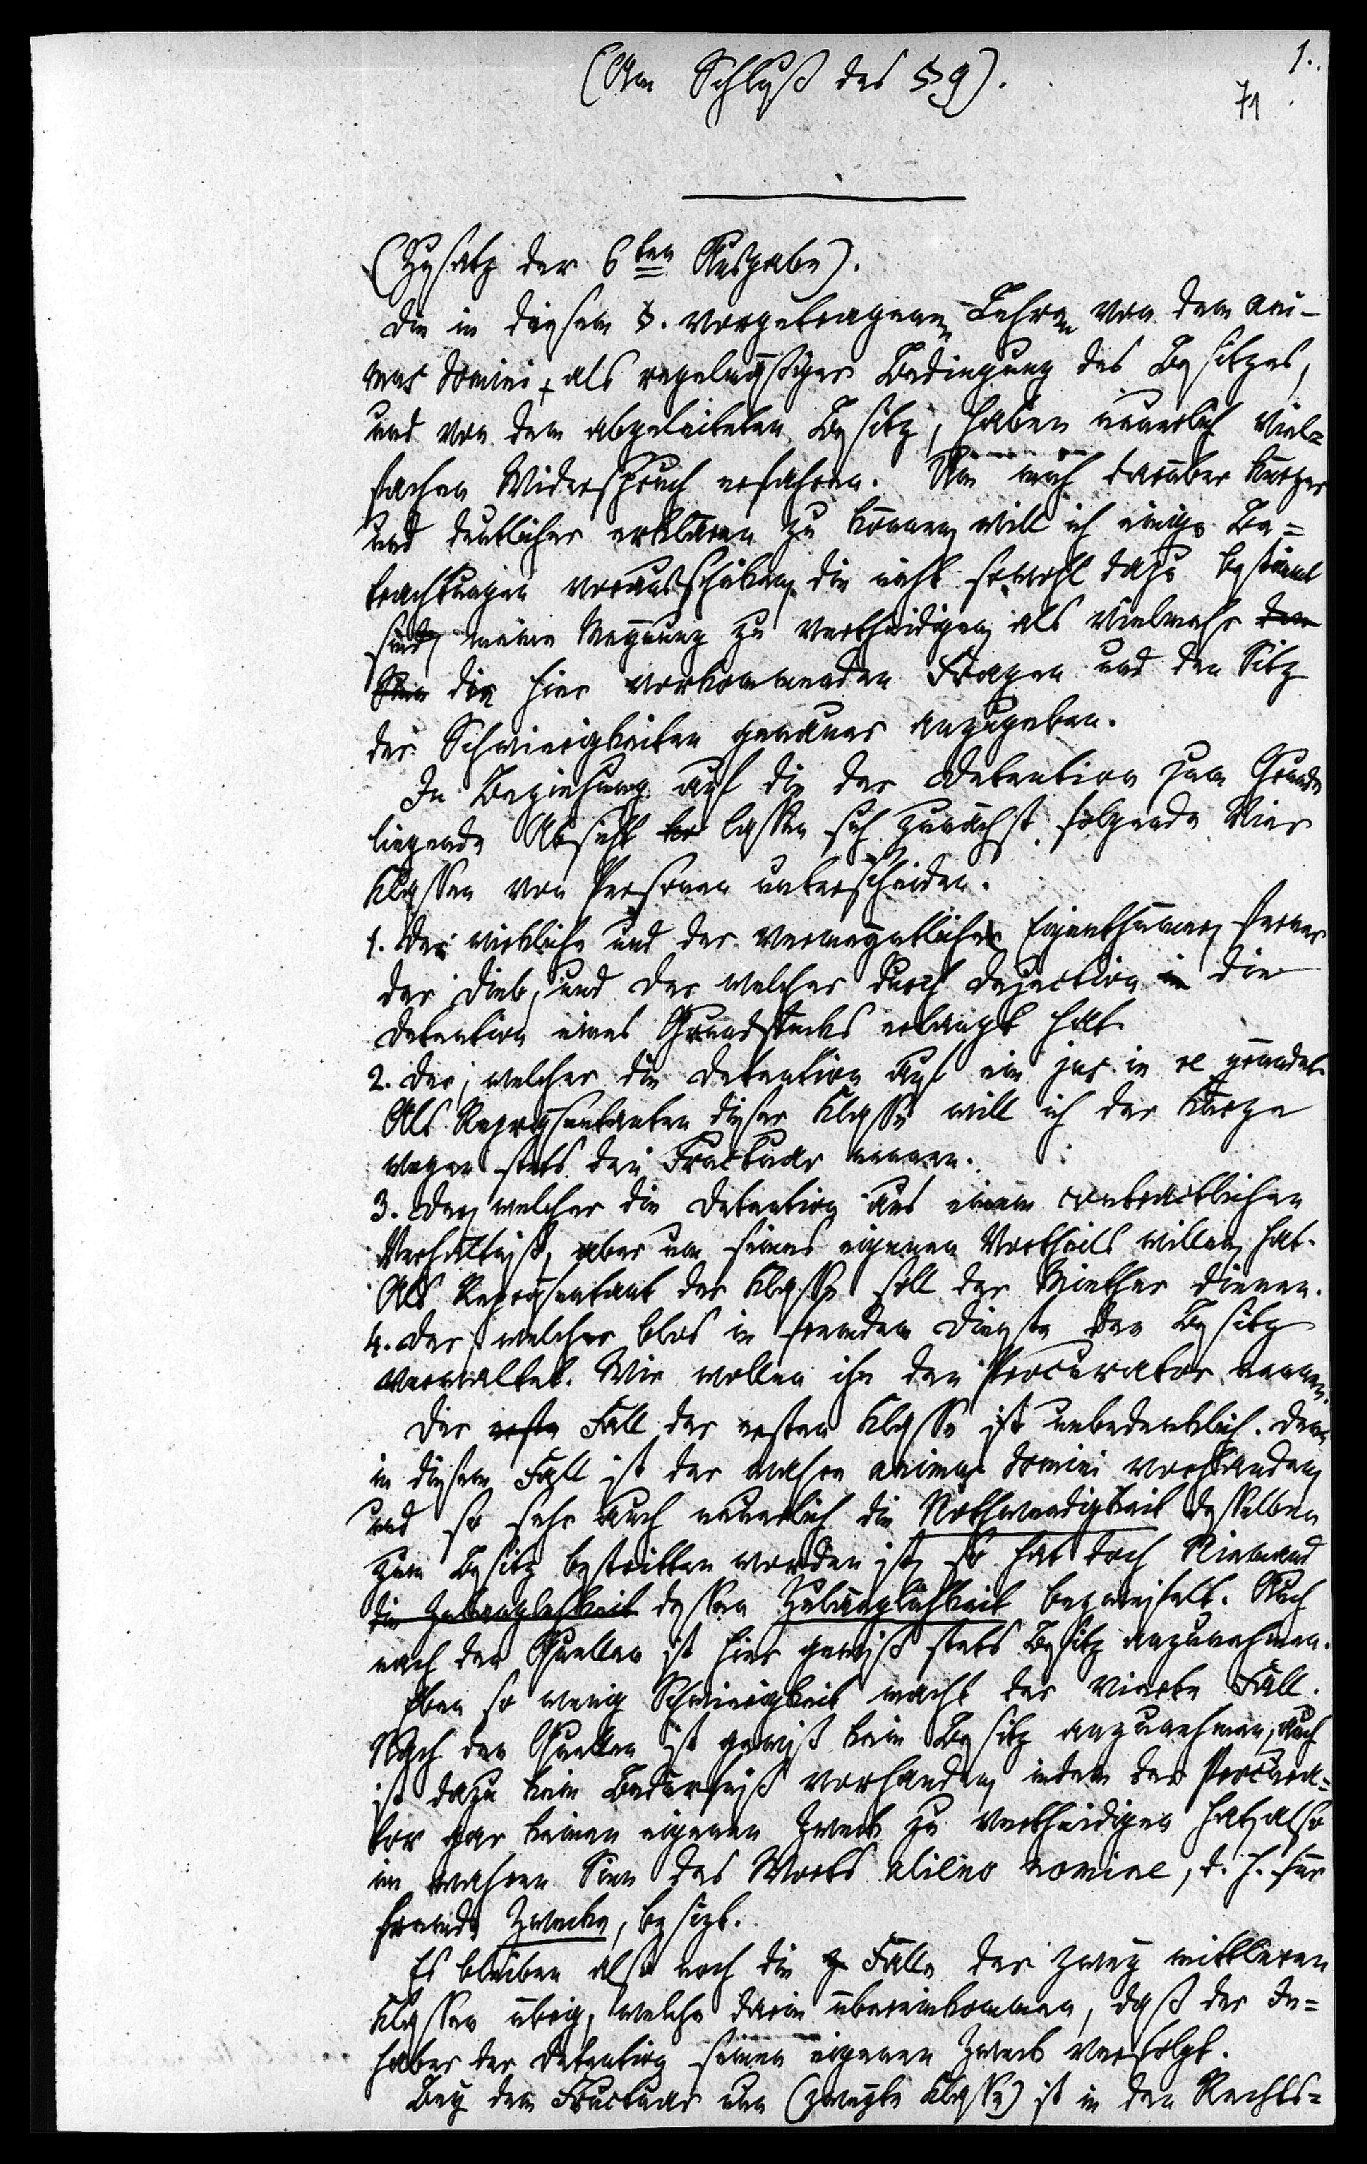 1.
(Am Schluß des § 9).
71
(Zusatz der 6ten Ausgabe).
Die in diesem §. vorgetragenen Lehren von dem ani-
mus domini, als regelmäßiger Bedingung des Besitzes,
und von dem abgeleiteten Besitz, haben neuerlich viel=
fachen Widerspruch erfahren. Um mich darüber kürzer
und deutlicher erklären zu können, will ich einige Be=
trachtungen vorausschicken, die nicht sowohl dazu bestimmt
sind, meine Meynung zu vertheidigen, als vielmehr den
Sinn die hier vorkommenden Fragen und den Sitz
der Schwierigkeiten genauer anzugeben.
In Beziehung auf die der Detention zum Grunde
liegende Absicht lassen sich zunächst folgende Vier
Klassen von Personen unterscheiden.
1. Der wirkliche und der vermeyntliche Eigenthümer, ferner
der Dieb, und der welcher durch Dejection in die
Detention eines Grundstücks erlangt hat.
2. Der, welcher die Detention auf ein jus in re gründet.
Als Repräsentanten dieser Klasse will ich der Kürze
wegen stets den Fructuar nennen.
3. Der, welcher die Detention aus einem contractlichen
Verhältniß, aber um seines eigenen Vortheils willen, hat.
Als Repräsentant der Klasse soll der Miether dienen.
4. Der welcher blos in fremdem Dienste den Besitz
verwaltet. Wir wollen ihn den Procurator nennen.
Der erste Fall der ersten Klasse ist unbedenklich. Denn
in diesem Fall ist der wahre animus domini vorhanden,
und so sehr auch neuerlich die Nothwendigkeit desselben
zum Besitz bestritten worden ist, so hat doch Niemand
die Zulänglichkeit dessen Zulänglichkeit bezweifelt. Auch
nach den Quellen ist hier gewiß stets Besitz anzunehmen.
Eben so wenig Schwierigkeit macht der vierte Fall.
Nach den Quellen ist gewiß kein Besitz anzunehmen, auch
ist dazu kein Bedürfniß vorhanden, indem der Procura=
tor gar keinen eigenen Zweck zu vertheidigen hat, also
im wahren Sinn des Worts alieno nomine, d. h. für
fremde Zwecke, besizt.
Es bleiben also noch die Fälle der zwey mittleren
Klassen übrig, welche darin übereinkommen, daß der In=
haber der Detention seinen eigenen Zweck verfolgt.
Bey dem Fructuar nun (zweyte Klasse) ist in den Rechts=